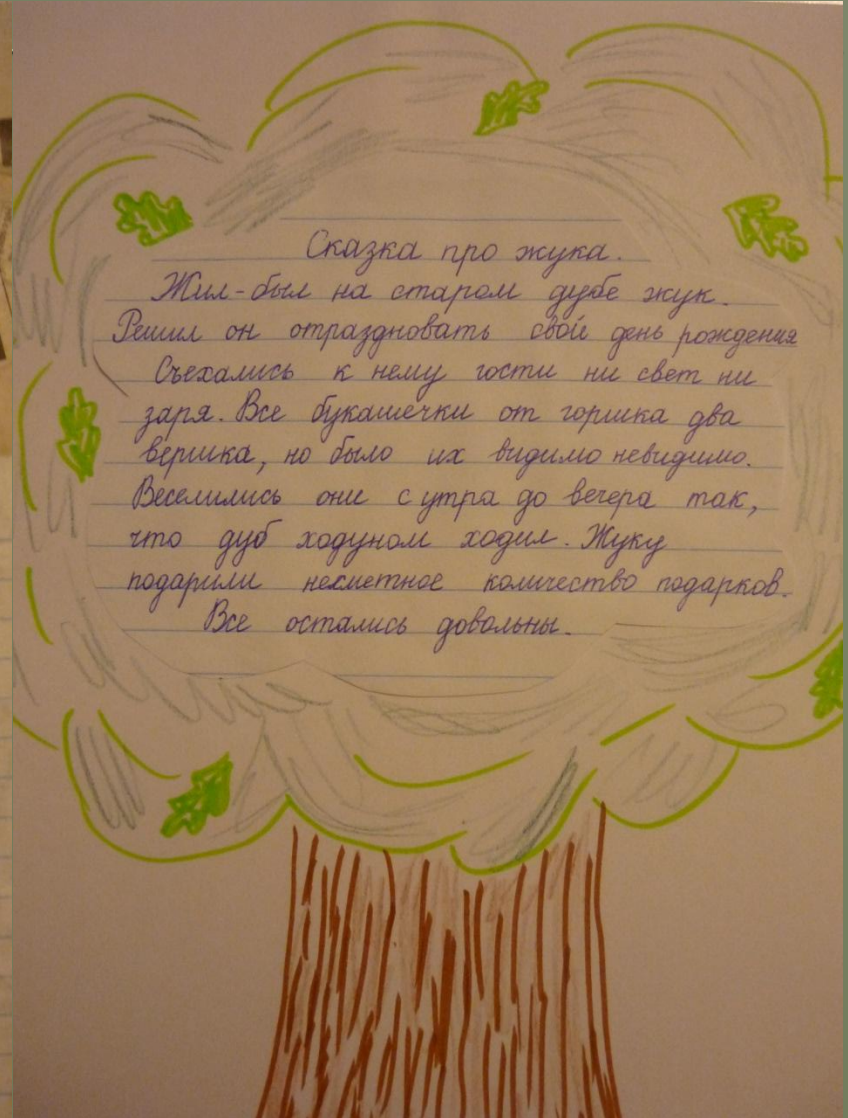 Сказка про жука.
Жил-был на старом дубе жук.
Решил он отпраздновать свой день рождения
Съехались к нему гости ни свет ни
заря. Все букашечки от горшка два
вершка, но было их видимо невидимо.
Веселились они с утра до вечера так,
что дуб ходуном ходил. Жуку
подарили несметное количество подарков.
Все остались довольны.